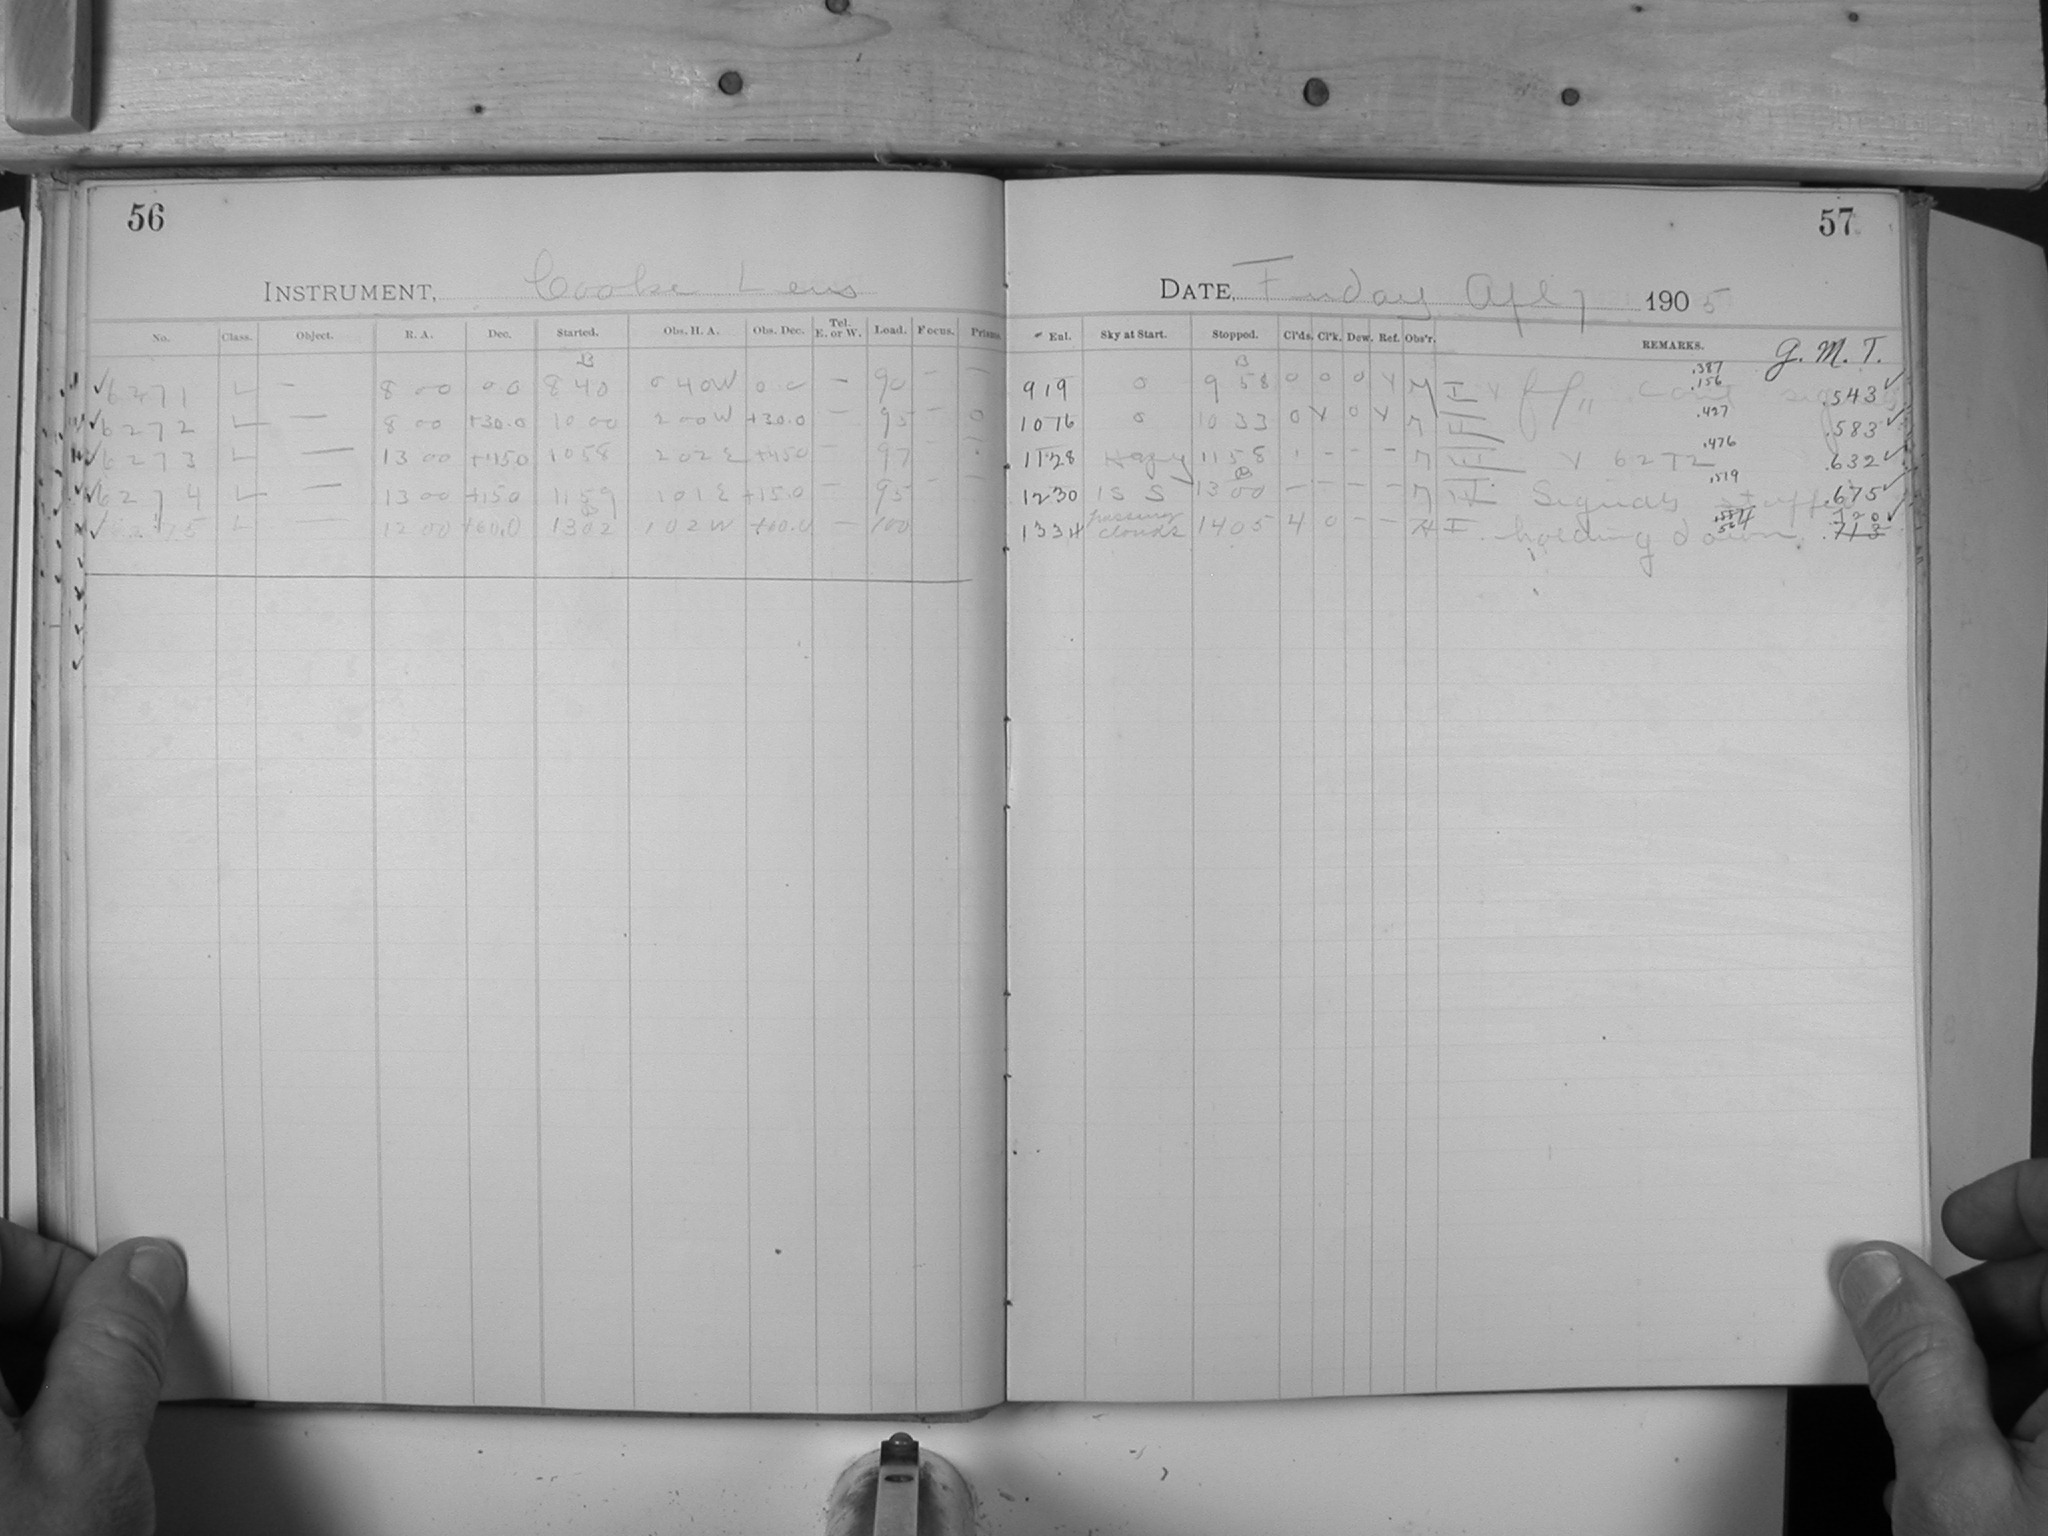 56
INSTRUMENT, Cooke Lens
No. Class. Object. R. A. Dec. Started. Obs. H. A. Obs. Dec. Tel. E. or W. Load. Focus. Prisms.
B
✓6271 L — 8 00 0.0 8 40 0 40W 0.0 — 90 — —
✓6272 L — 8 00 +30.0 10 00 2 00W +30.0 — 95 — 0
✓6273 L — 13 00 +45.0 10 58 2 02E +45.0 — 97 —
✓6274 L — 13 00 +15.0 11 59 1 01E +15.0 — 95 — —
✓6275 L — 12 00 +60.0 13 02 1 02W +60.0 — 100
57
DATE, Friday Apl 7 1905
Enl. Sky at Start. Stopped. Cl'ds. Cl'k. Dew. Ref. Obs'r. REMARKS. G. M. T.
B .387
919 0 9 58 0 0 0 Y M I .156 .543 ✓
1016 0 10 33 0 Y 0 Y M II .427 .583 ✓
1128 Hazy 11 58 1 - - - M III Y 6272 .476 .632 ✓
1230 1 S S 13 00 — — — — M IV. Signals .519 .675 ✓
1334 passing clouds 14 05 4 0 - - I. holding down .720 ✓
.713